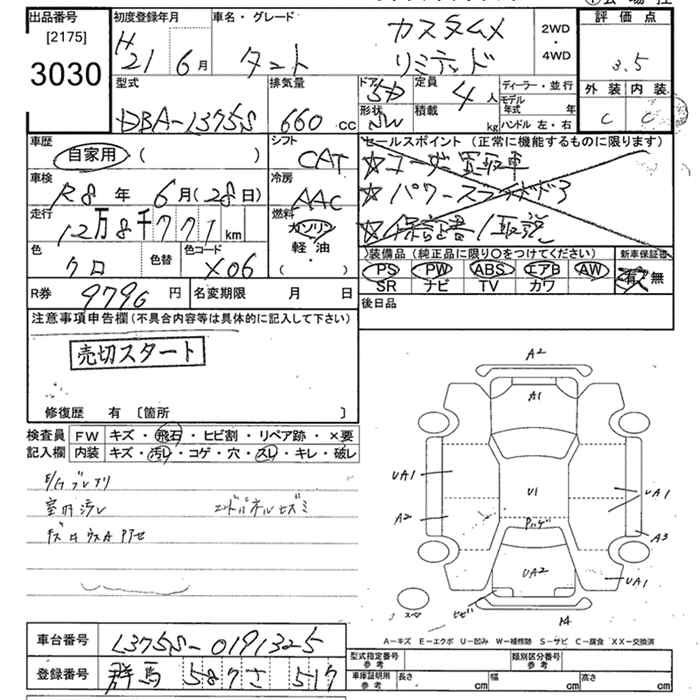 出品番号
[2175]
3030
初度登録年月
H21 6月
車名・グレード
タント
カスタムX
リミテッド
2WD
・
4WD
評価点
3.5
外装 内装
C C
型式
DBA-L375S
排気量
660 cc
ドア
5D
形状
SW
定員
4人
積載
kg
ディーラー・並行
モデル年式 年
ハンドル 左・右
車歴
自家用 ( )
シフト
CAT
車検
R8年 6月(28日)
冷房
AAC
走行
12万8千771km
燃料
ガソリン
軽・油
( ・ )
色
クロ
色替
色コード
X06
セールスポイント (正常に機能するものに限ります)
☆ユーザー買取車
☆パワースライドドア
☆保証書/取説
装備品 (純正品に限り○をつけてください)
新車保証書
PS PW ABS エアB AW
SR ナビ TV カワ
有・無
R券 9790円
名変期限 月 日
後日品
注意事項申告欄 (不具合内容等は具体的に記入して下さい)
売切スタート
修復歴 有 〔箇所 〕
検査員記入欄
FW キズ・飛石・ヒビ割・リペア跡・×要
内装 キズ・汚レ・コゲ・穴・スレ・キレ・破レ
室内汚レ
エンドパネルヒズミ
A2
A1
UA1
A2
U1
UA1
A3
UA2
UA1
ヒビ
A-キズ E-エクボ U-凹み W-補修跡 S-サビ C-腐食 XX-交換済
車台番号 L375S-0191325
登録番号 群馬 587 さ 517
型式指定番号 参考
類別区分番号 参考
車庫証明用 参考
長さ cm
幅 cm
高さ cm